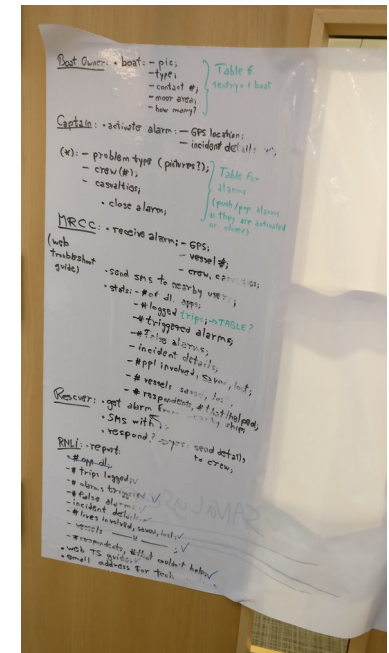 Boat Owner: • boat: - pic;
- type;
- contact #;
- moor area;
- how many?
Table 6
sentry on boat
Captain: • activate alarm: - GPS location;
- incident details
(*): - problem type (pictures?);
- crew (#);
- casualties;
• close alarm;
Table for
alarms
(push/pop alarms
as they are activated
or closed)
MRCC: • receive alarm; - GPS;
- vessel #;
- crew,
(web
troubleshoot
guide)
• send SMS to nearby users;
• stats: - # of dl. apps;
- # logged trips; → TABLE?
- # triggered alarms;
- # false alarms;
- incident details;
- # ppl involved, saved, lost;
- # vessels saved, lost;
- # respondents, # that helped;
Rescuer: • get alarm from nearby ships;
• SMS with
• respond? → yes: send details
to crew;
RNLI: • report:
- # app dl.
- # trips logged; ✓
- # alarms triggered ✓
- # false alarms ✓
- incident details ✓
- # lives involved, saved, lost; ✓
- vessels — " — ; ✓
- # respondents, # that couldn't help; ✓
• web TS guide; ✓
• email address for tech